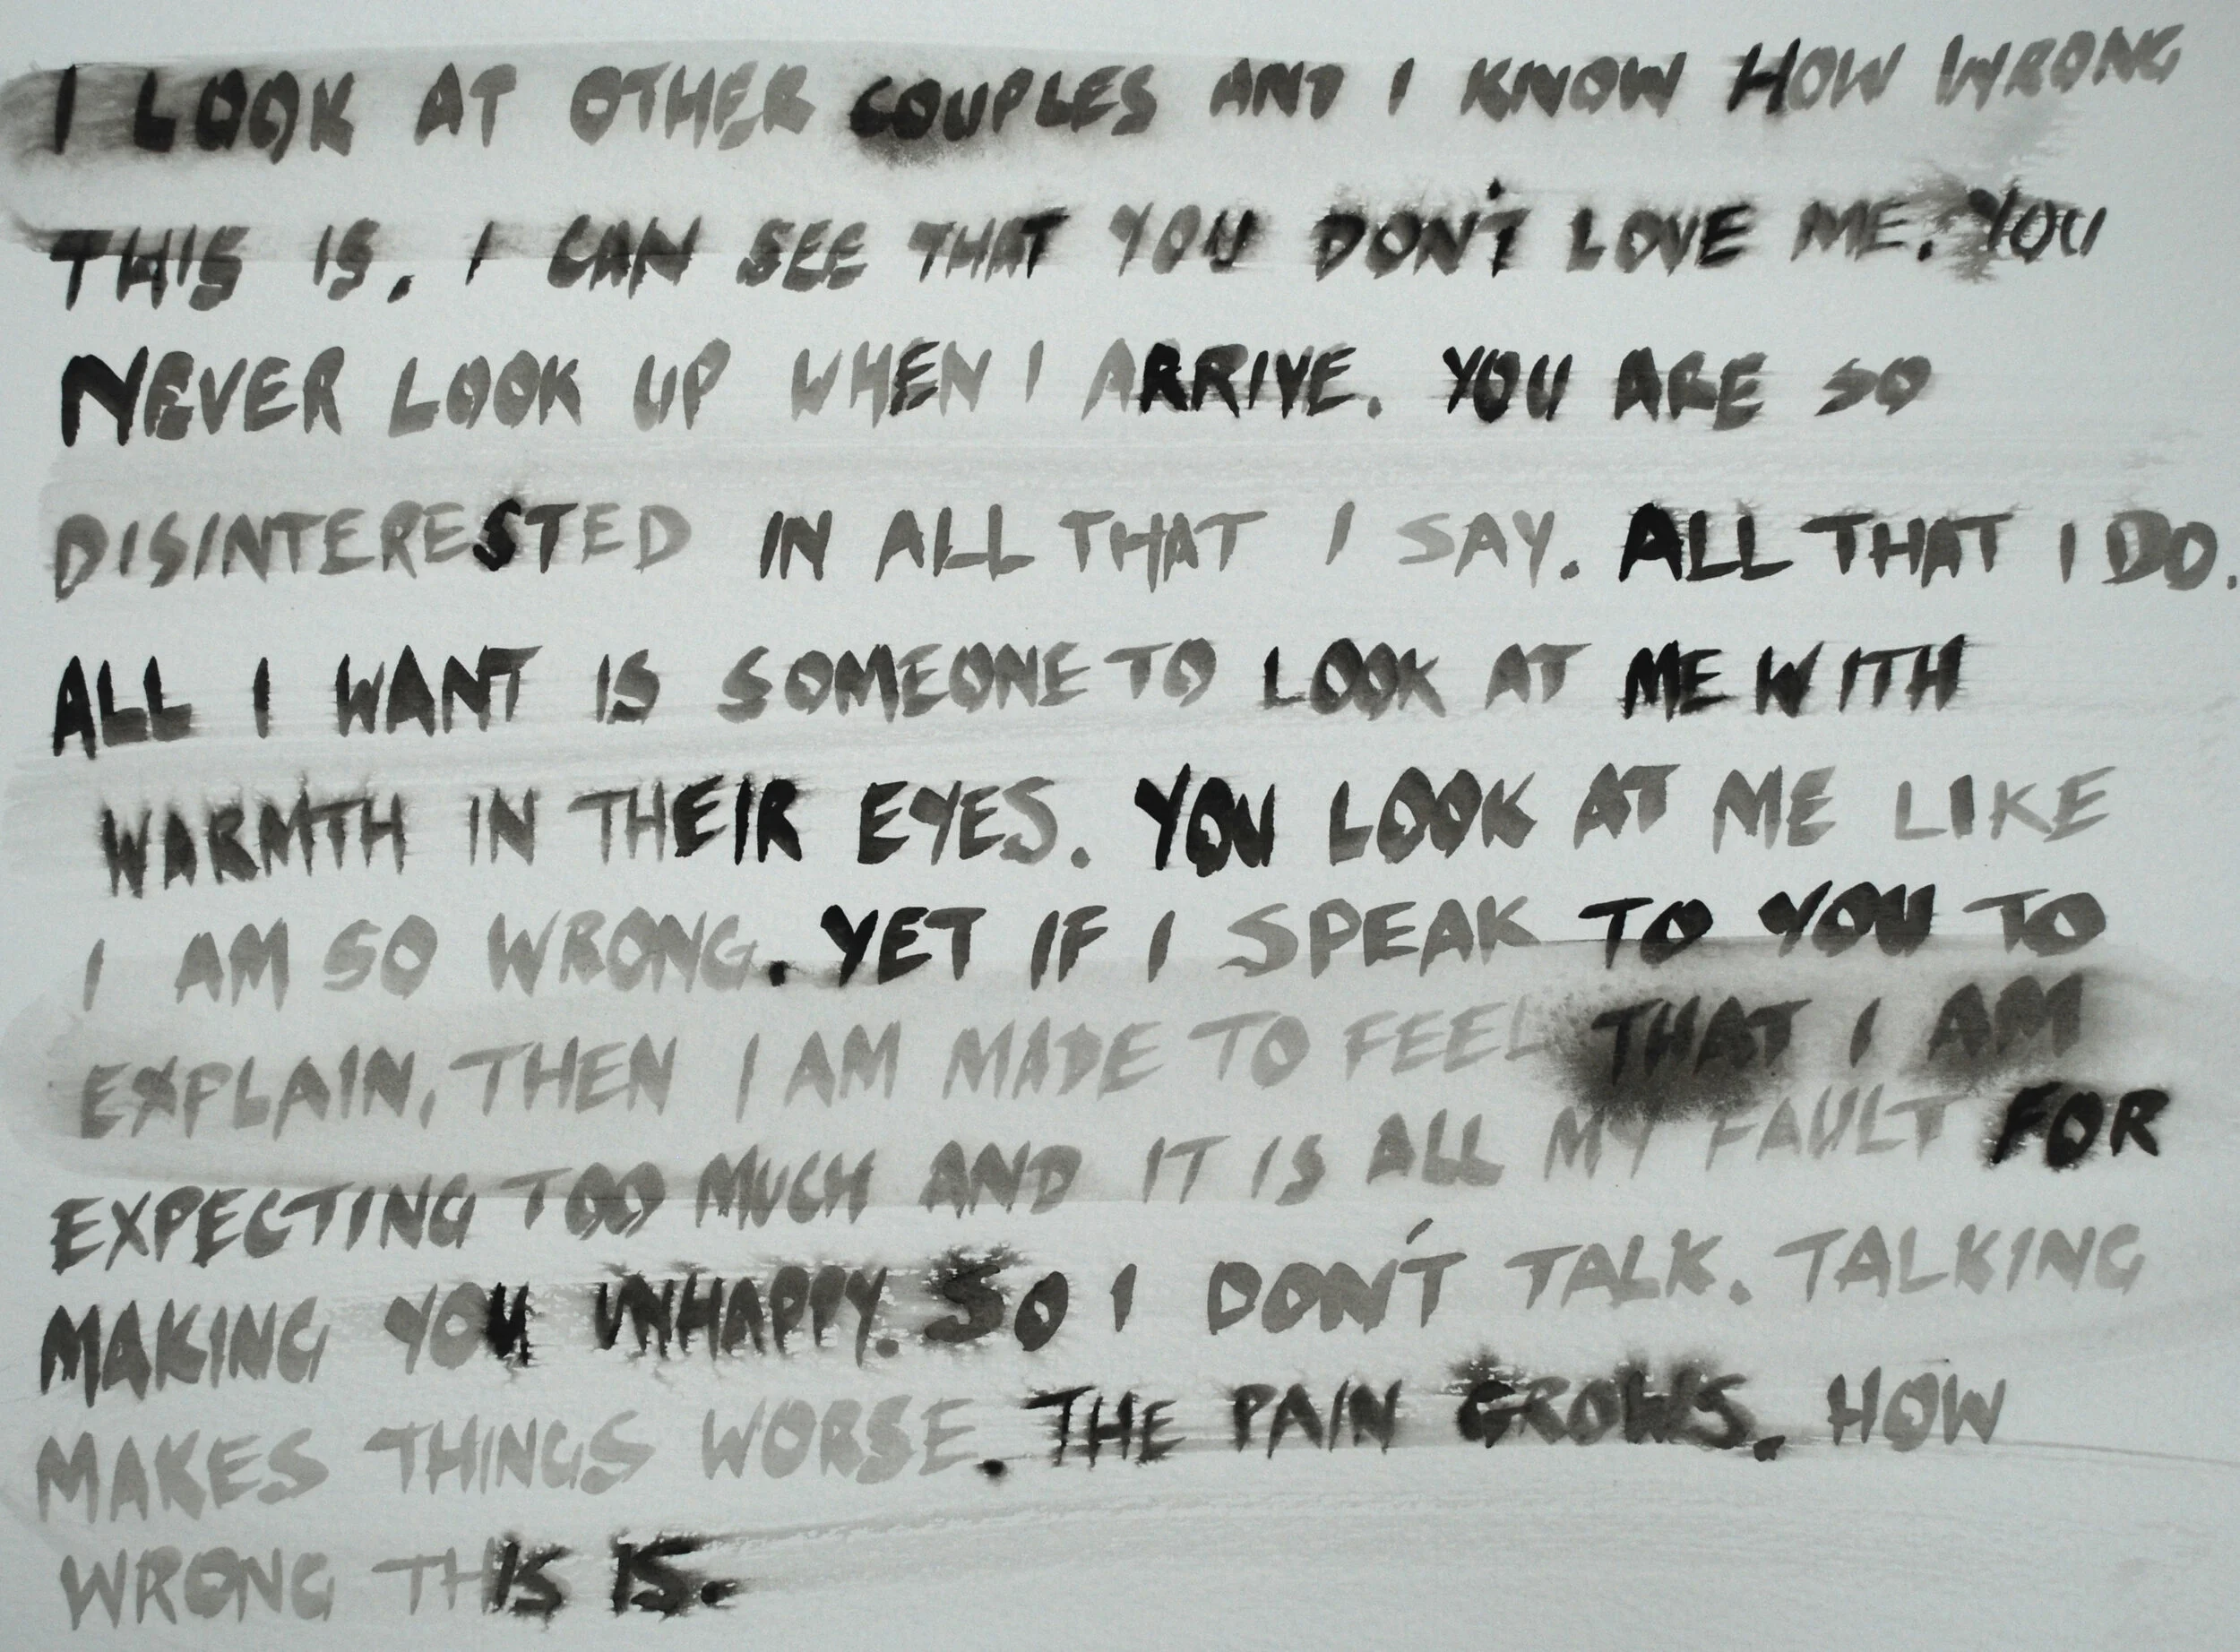 I LOOK AT OTHER COUPLES AND I KNOW HOW WRONG
THIS IS. I CAN SEE THAT YOU DON'T LOVE ME. YOU
NEVER LOOK UP WHEN I ARRIVE. YOU ARE SO
DISINTERESTED IN ALL THAT I SAY. ALL THAT I DO.
ALL I WANT IS SOMEONE TO LOOK AT ME WITH
WARMTH IN THEIR EYES. YOU LOOK AT ME LIKE
I AM SO WRONG. YET IF I SPEAK TO YOU TO
EXPLAIN, THEN I AM MADE TO FEEL THAT I AM
EXPECTING TOO MUCH AND IT IS ALL MY FAULT FOR
MAKING YOU UNHAPPY. SO I DON'T TALK. TALKING
MAKES THINGS WORSE. THE PAIN GROWS. HOW
WRONG THIS IS.